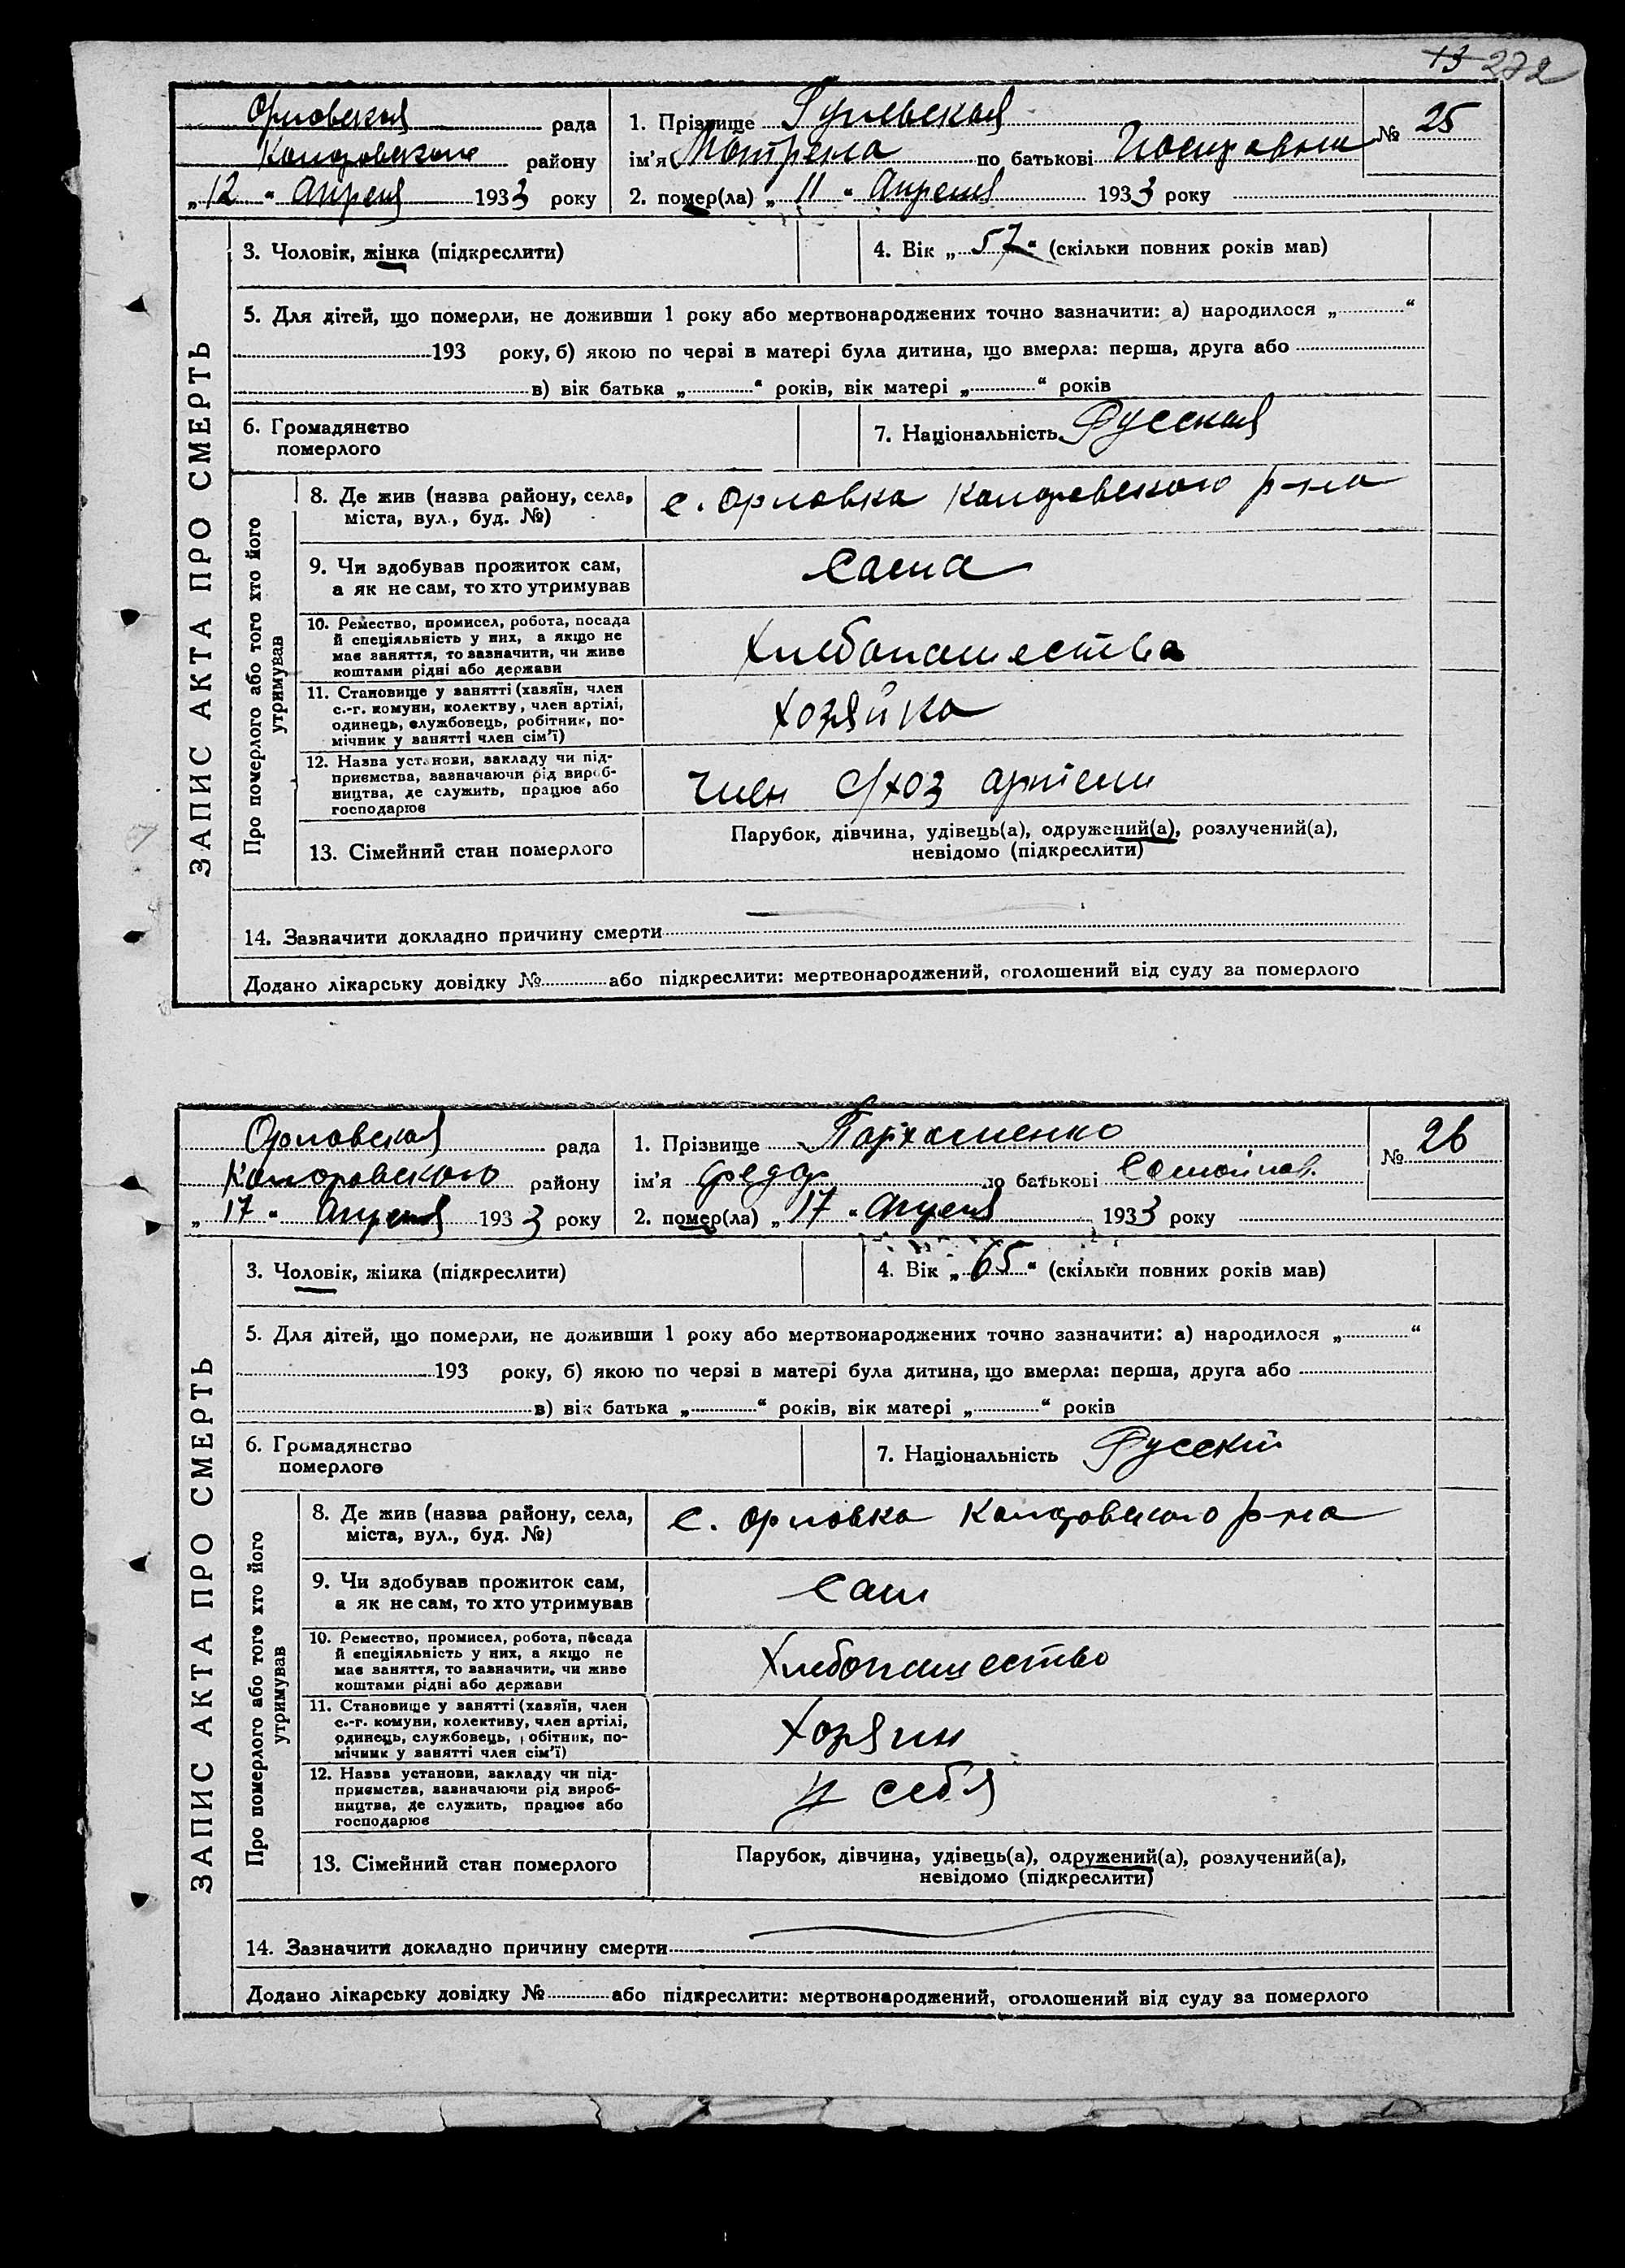 13 272
Орловская рада 1. Прізвище Гульвская № 25
району ім'я Мотрена по батькові
„12“ Апреля 1933 року 2. помер(ла) „11“ Апреля 1933 року
ЗАПИС АКТА ПРО СМЕРТЬ
3. Чоловік, жінка (підкреслити) 4. Вік „57“ (скільки повних років мав)
5. Для дітей, що померли, не доживши 1 року або мертвонароджених точно зазначити: а) народилося „ “
193 року, б) якою по черзі в матері була дитина, що вмерла: перша, друга або
в) вік батька „ “ років, вік матері „ “ років
6. Громадянство
померлого
7. Національність Русская
Про померлого або того хто його
утримував
8. Де жив (назва району, села,
міста, вул., буд. №)
с. Орловка р-на
9. Чи здобував прожиток сам,
а як не сам, то хто утримував
Сама
10. Ремество, промисел, робота, посада
й спеціяльність у них, а якщо не
має заняття, то зазначити, чи живе
коштами рідні або держави
Хлебопашества
11. Становище у занятті (хазяїн, член
с.-г. комуни, колективу, член артілі,
одинець, службовець, робітник, по-
мічник у занятті член сім'ї)
Хозяйка
12. Назва установи, закладу чи під-
приємства, зазначаючи рід вироб-
ництва, де служить, працює або
господарює
Член с/хоз артели
13. Сімейний стан померлого
Парубок, дівчина, удівець(а), одружений(а), розлучений(а),
невідомо (підкреслити)
14. Зазначити докладно причину смерти
Додано лікарську довідку № або підкреслити: мертвонароджений, оголошений від суду за померлого
Орловская рада 1. Прізвище Пархоменко № 26
району ім'я Федор по батькові Самойлов.
„17“ Апреля 1933 року 2. помер(ла) „17“ Апреля 1933 року
ЗАПИС АКТА ПРО СМЕРТЬ
3. Чоловік, жінка (підкреслити) 4. Вік „65“ (скільки повних років мав)
5. Для дітей, що померли, не доживши 1 року або мертвонароджених точно зазначити: а) народилося „ “
193 року, б) якою по черзі в матері була дитина, що вмерла: перша, друга або
в) вік батька „ “ років, вік матері „ “ років
6. Громадянство
померлого
7. Національність Русский
Про померлого або того хто його
утримував
8. Де жив (назва району, села,
міста, вул., буд. №)
с. Орловка р-на
9. Чи здобував прожиток сам,
а як не сам, то хто утримував
Сам
10. Ремество, промисел, робота, посада
й спеціяльність у них, а якщо не
має заняття, то зазначити, чи живе
коштами рідні або держави
Хлебопашество
11. Становище у занятті (хазяїн, член
с.-г. комуни, колективу, член артілі,
одинець, службовець, робітник, по-
мічник у занятті член сім'ї)
Хозяин
12. Назва установи, закладу чи під-
приємства, зазначаючи рід вироб-
ництва, де служить, працює або
господарює
У себя
13. Сімейний стан померлого
Парубок, дівчина, удівець(а), одружений(а), розлучений(а),
невідомо (підкреслити)
14. Зазначити докладно причину смерти
Додано лікарську довідку № або підкреслити: мертвонароджений, оголошений від суду за померлого